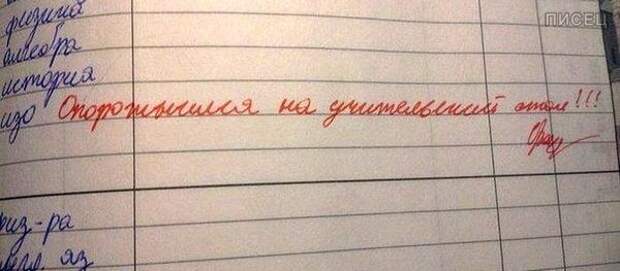 ПИСЕЦ
физика
алгебра
история
изо Опорожнился на учительский стол!!!
физ-ра
яз